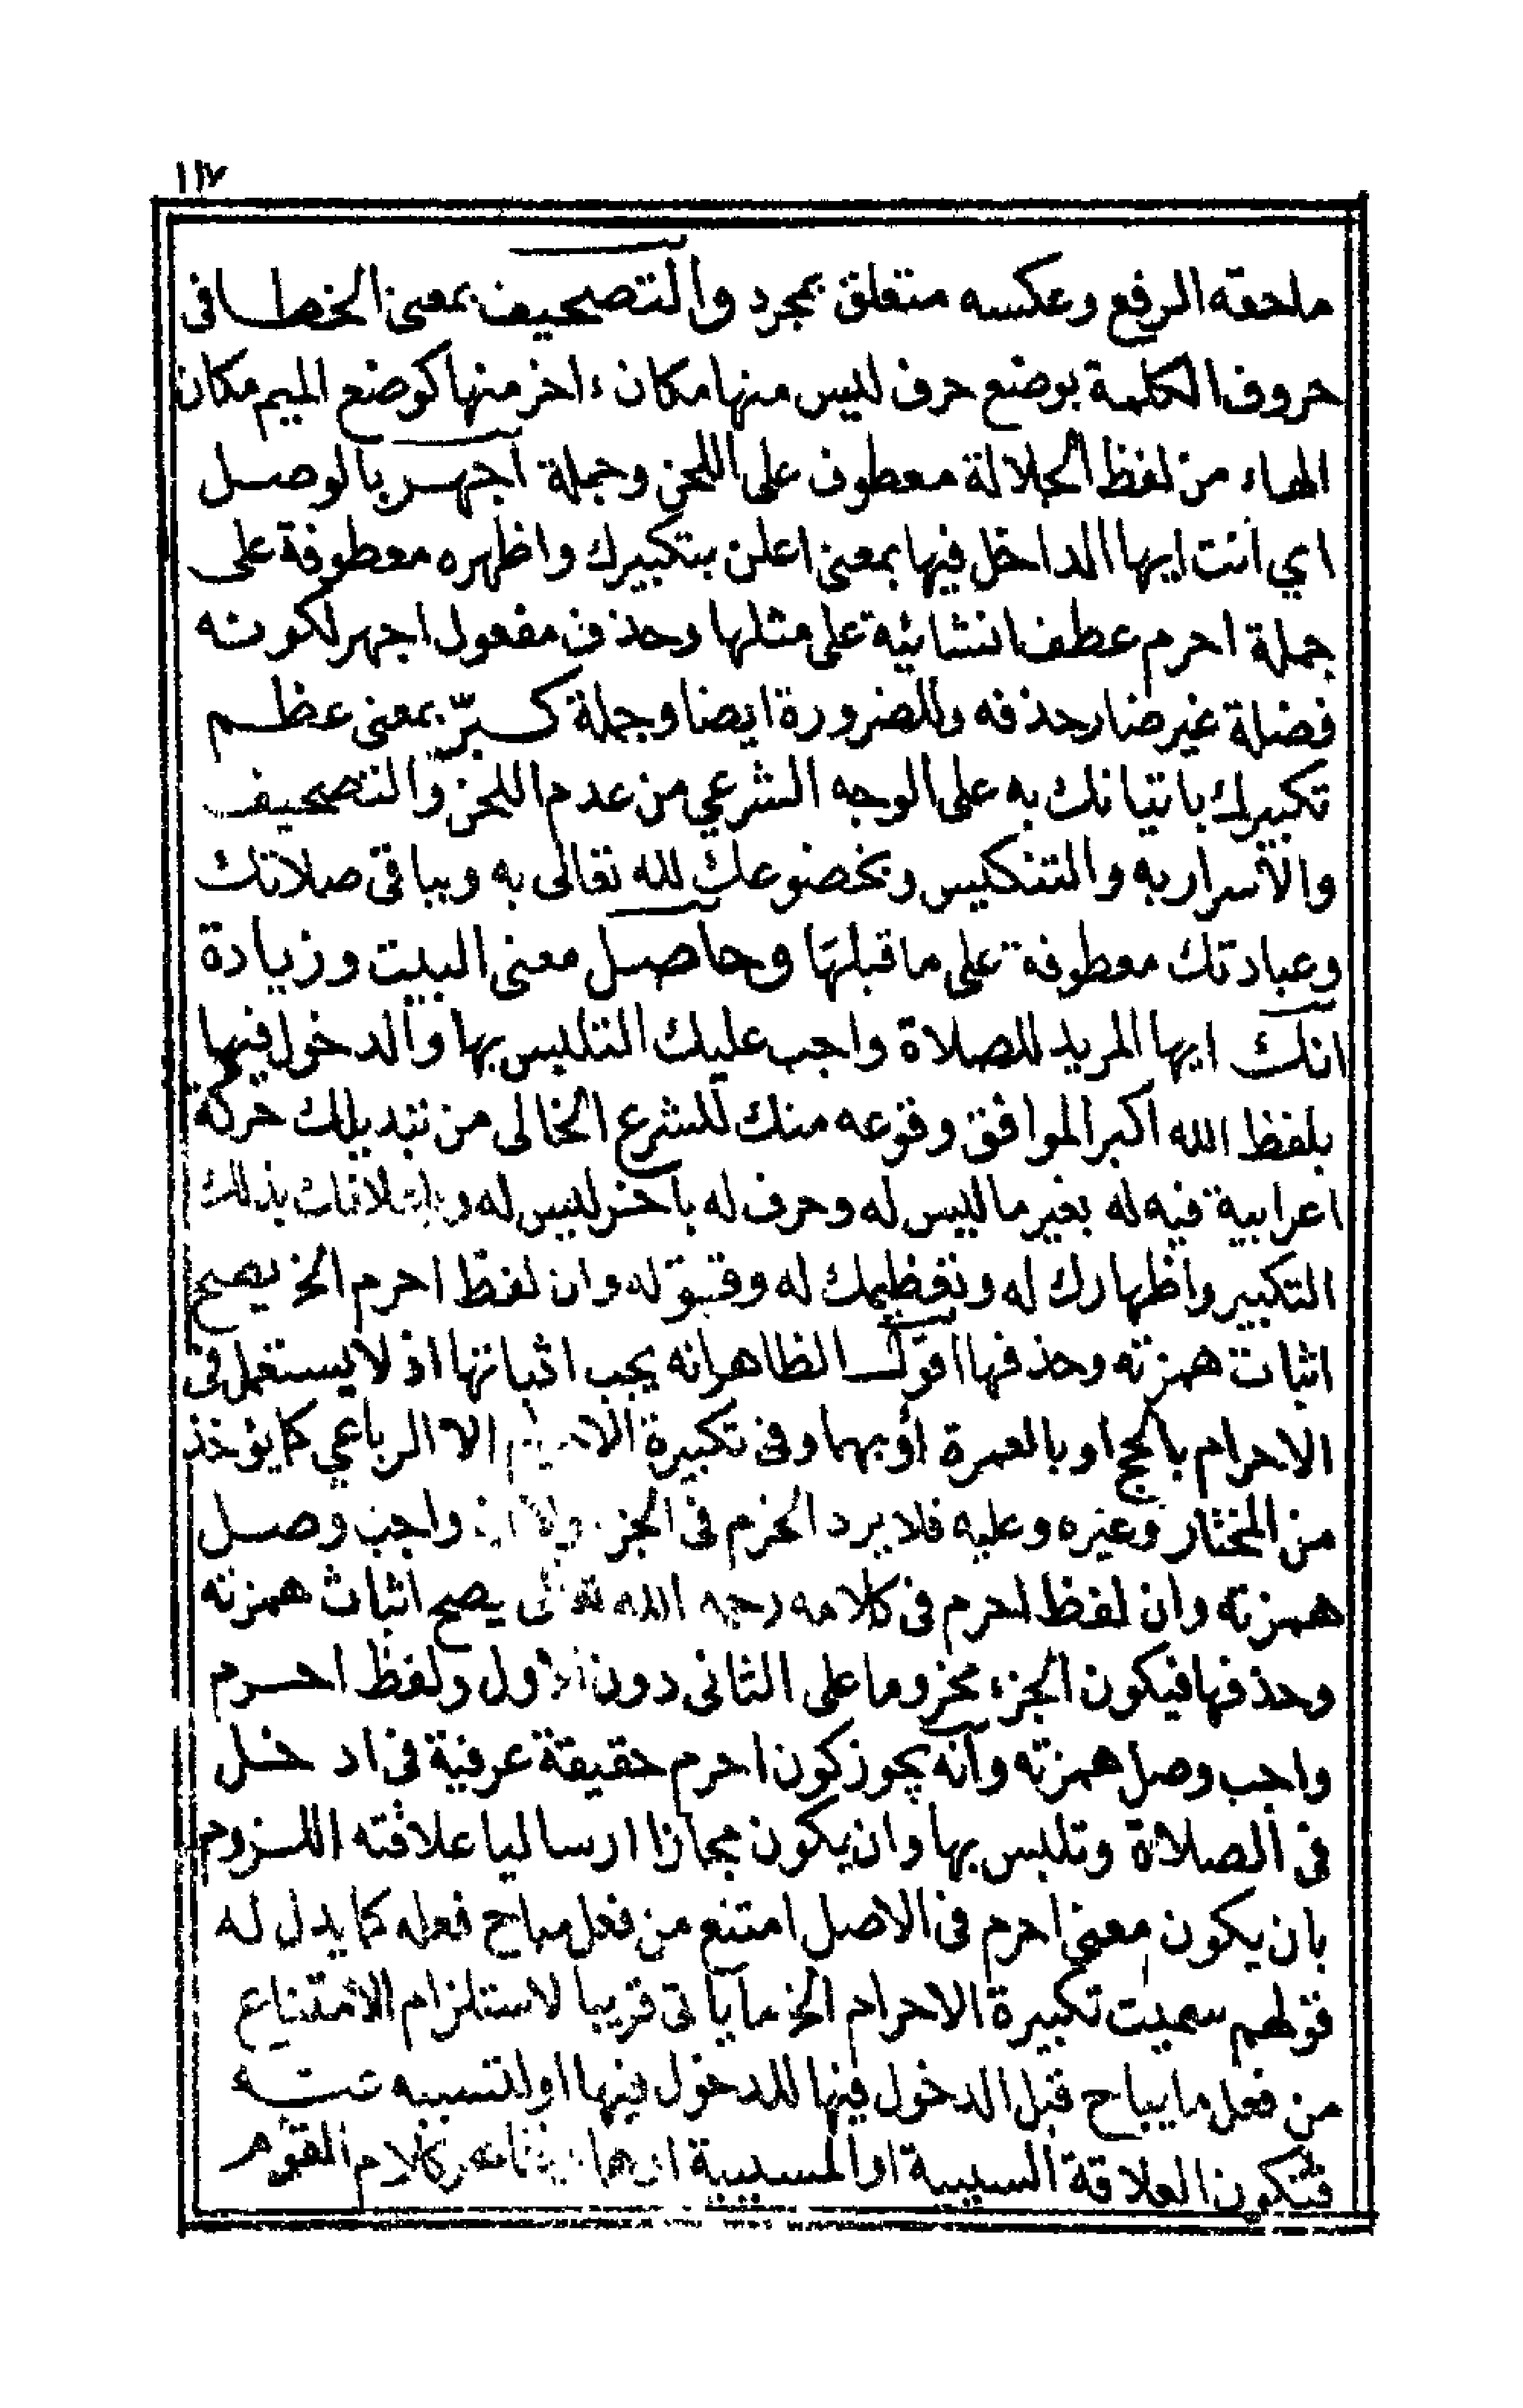 ١١٧
ماحقه الرفع وعكسه متعلق بمجرد والتصحيف بمعنى الخطا فى
حروف الكلمة بوضع حرف ليس منها مكان ءاخر منها كوضع الميم مكان
الهاء من لفظ الجلالة معطوف على اللحن وجملة اجهر بالوصل
اي انت ايها الداخل فيها بمعنى اعلن بتكبيرك واظهره معطوفة على
جملة احرم عطف انشائية على مثلها وحذف مفعول اجهر لكونه
فضلة غير ضار حذفه وللضرورة ايضا وجملة كبّر بمعنى عظم
تكبيرك باتيانك به على الوجه الشرعي من عدم اللحن والتصحيف
والاسرار به والتنكيس وبخضوعك لله تعالى به وبباقى صلاتك
وعبادتك معطوفة على ما قبلها وحاصل معنى البيت وزيادة
انك ايها المريد للصلاة واجب عليك التلبس بها والدخول فيها
بلفظ الله اكبر الموافق وقوعه منك للشرع الخالى من تبديلك حركة
اعرابية فيه له بغير ما ليس له وحرف له باخر ليس له بذلك
التكبير واظهارك له وتعظيمك له وقبوله وان لفظ احرم الخ يصح
اثبات همزته وحذفها اقول الظاهر انه يجب اثباتها اذ لا يستعمل فى
الاحرام بالحج او بالعمرة او بهما وفى تكبيرة الاحرام الا الرباعي كما يؤخذ
من المختار وغيره وعليه فلا يرد الخرم فى الجزء واجب وصل
همزته وان لفظ احرم فى كلامه رحمه الله تعالى يصح اثبات همزته
وحذفها فيكون الجزء مخروما على الثانى دون الاول ولفظ احرم
واجب وصل همزته وانه يجوز كون احرم حقيقة عرفية فى ادخل
فى الصلاة وتلبس بها وان يكون مجازا ارساليا علاقته اللزوم
بان يكون معنى احرم فى الاصل امتنع من فعل مباح فعله كما يدل له
قولهم سميت تكبيرة الاحرام الخ ما ياتى قريبا لاستلزام الامتناع
من فعل ما يباح قبل الدخول فيها للدخول فيها او لتسببه عنه
فتكون العلاقة السببية او المسببية كلام القوم